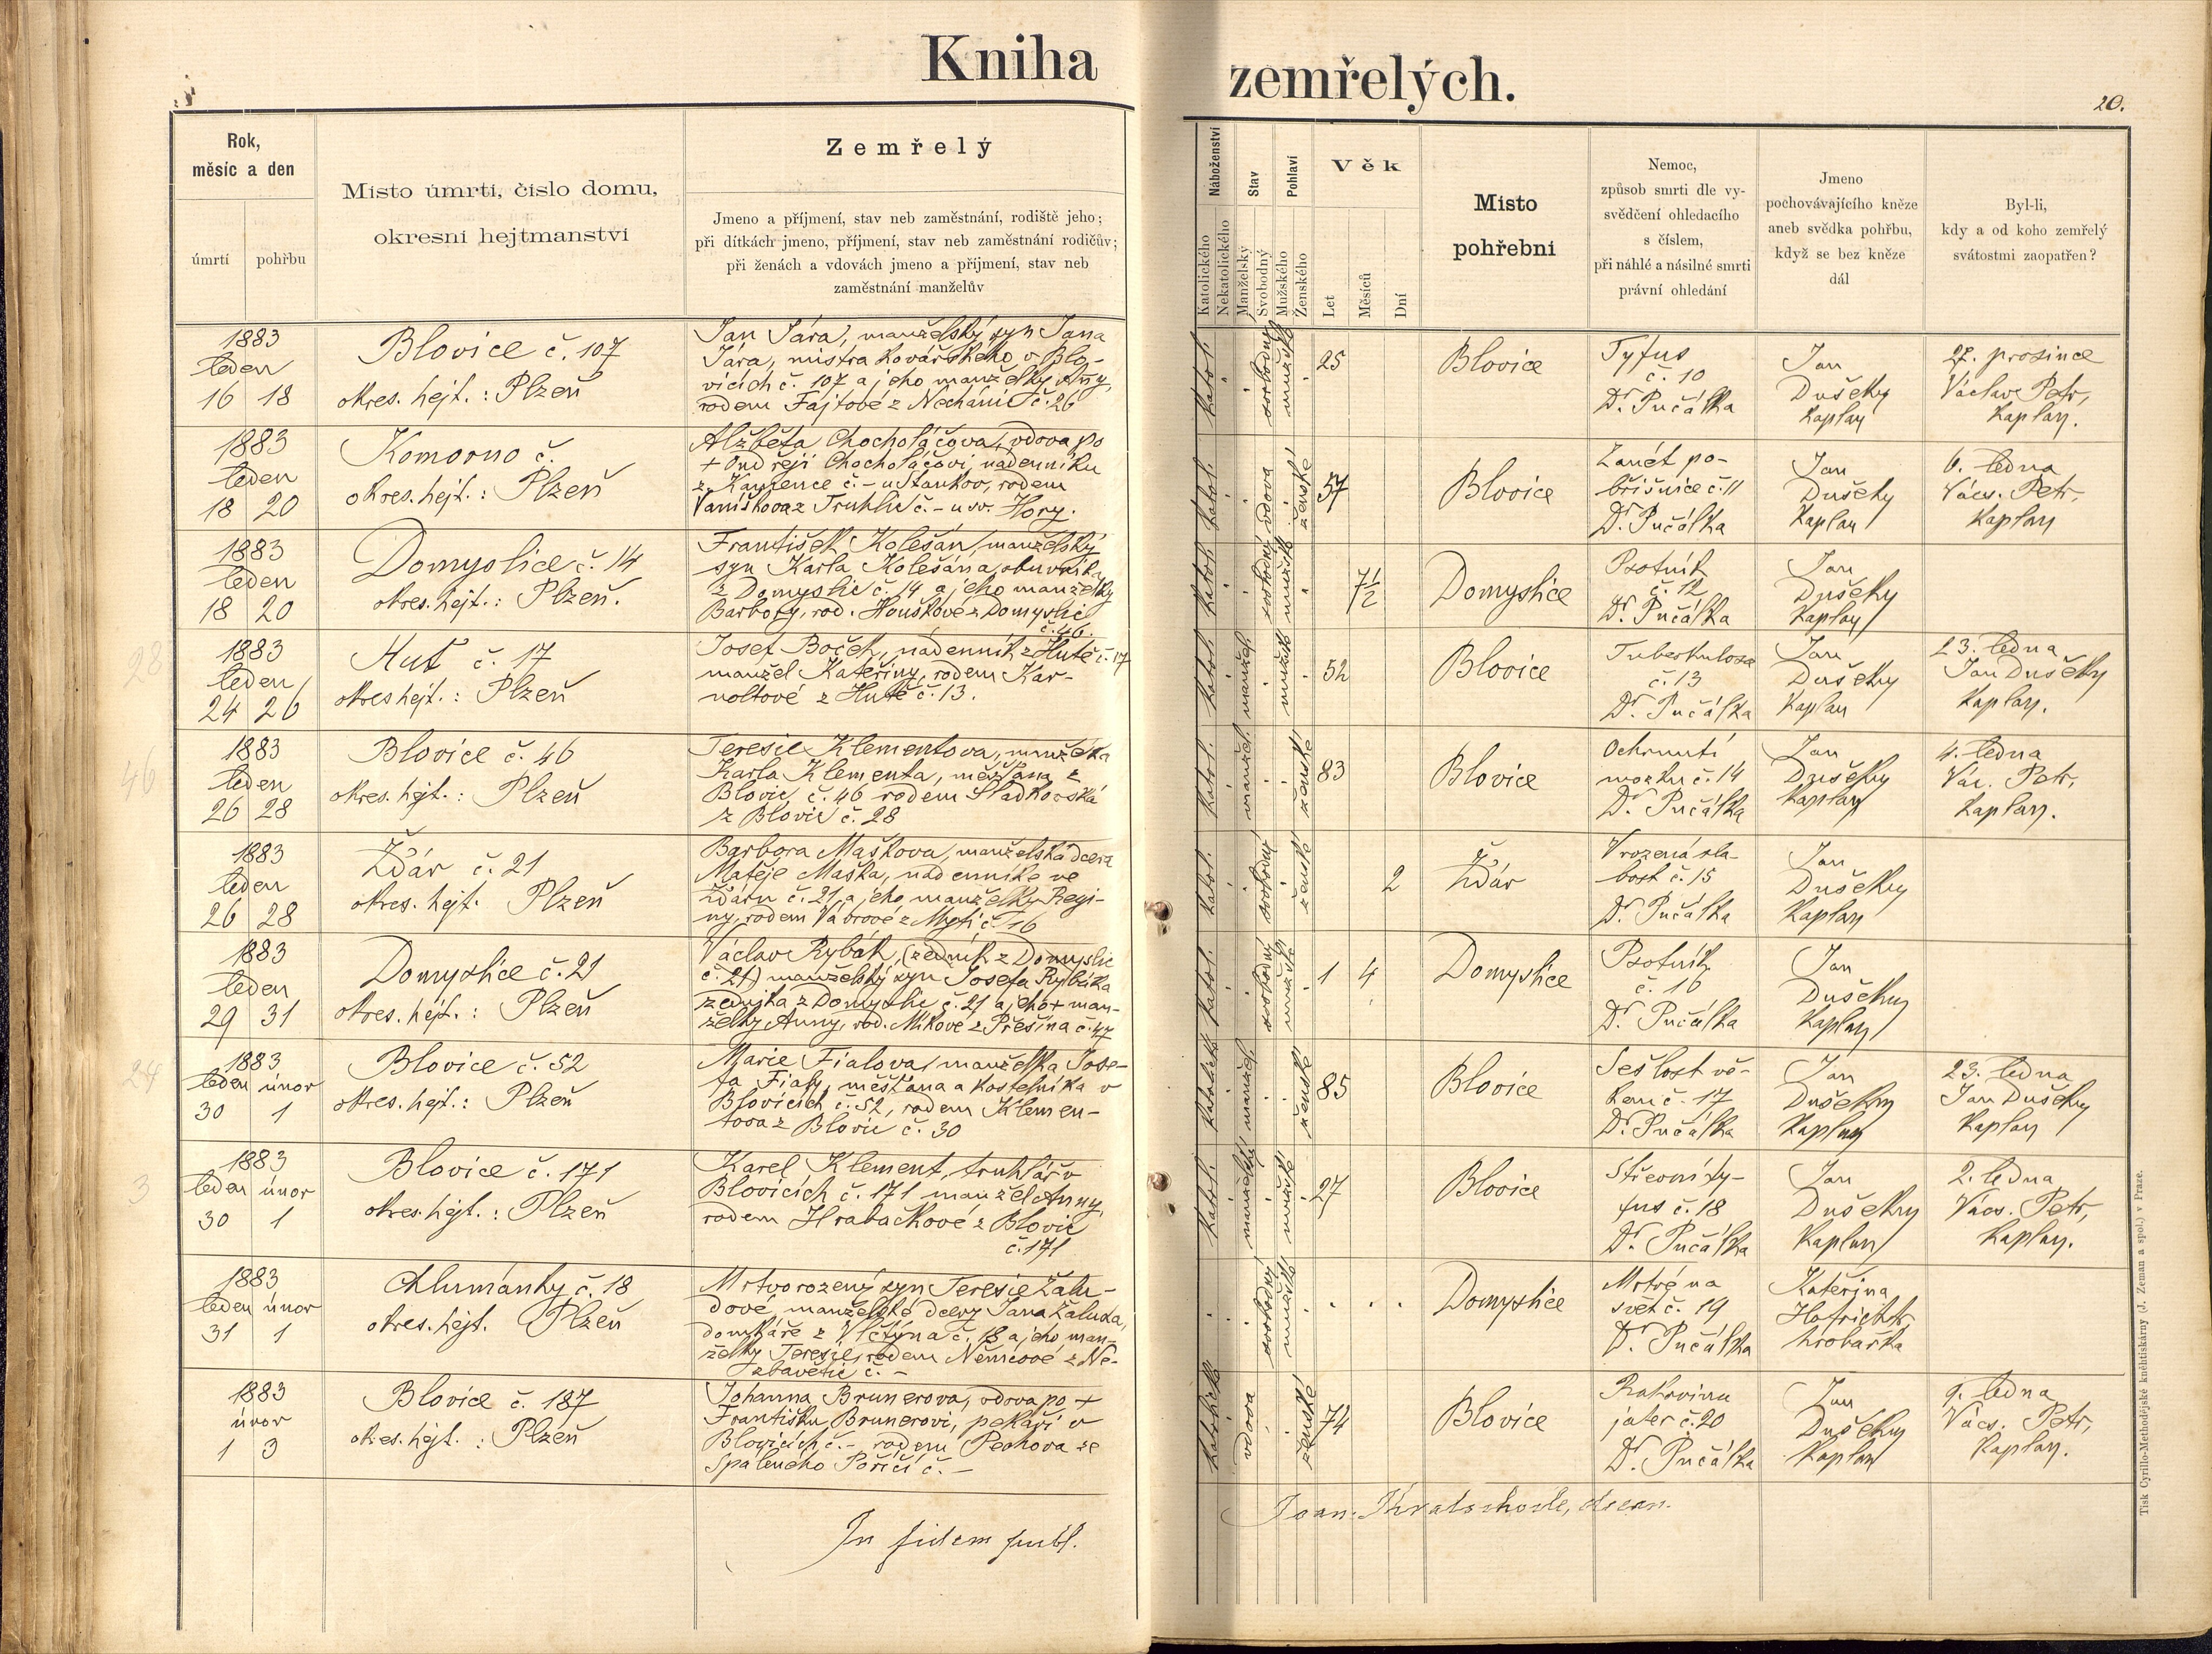 Kniha zemřelých.
20.
Rok,
měsíc a den
úmrtí
pohřbu
Místo úmrtí, číslo domu,
okresní hejtmanství
Zemřelý
Jmeno a příjmení, stav neb zaměstnání, rodiště jeho;
při dítkách jmeno, příjmení, stav neb zaměstnání rodičův;
při ženách a vdovách jmeno a příjmení, stav neb
zaměstnání manželův
Náboženství
Katolického
Nekatolického
Stav
Manželský
Svobodný
Pohlaví
Mužského
Ženského
Věk
Let
Měsíců
Dní
Místo
pohřební
Nemoc,
způsob smrti dle vy-
svědčení ohledacího
s číslem,
při náhlé a násilné smrti
právní ohledání
Jmeno
pochovávajícího kněze
aneb svědka pohřbu,
když se bez kněze
dál
Byl-li,
kdy a od koho zemřelý
svátostmi zaopatřen?
1883
leden
16 18
Blovice č. 107
okres. hejt.: Plzeň
Jan Jára, manželský syn Jana
Jára, mistra kovářského v Blo-
vicích č. 107 a jeho manželky Anny,
rodem Fajtové z Nechanic č. 26
katol.
svobodný
mužské
25
Blovice
Tyfus
č. 10
Dr. Pučálka
Jan
Dušek
kaplan
27. prosince
Václav Petr,
kaplan.
1883
leden
18 20
Komorno č.
okres. hejt.: Plzeň
Alžběta Chocholáčova, vdova po
+ Ondřeji Chocholáčovi, nádenníku
z Kamence č. - u Staňkov, rodem
Vaníškova z Truhlic č. - u sv. Hory.
katol.
vdova
ženské
57
Blovice
Zánět po-
břišnice č. 11
Dr. Pučálka
Jan
Dušek
kaplan
6. ledna
Václ. Petr,
kaplan
1883
leden
18 20
Domyslice č. 14
okres. hejt.: Plzeň.
František Kolešán, manželský
syn Karla Kolešána, obuvníka
z Domyslic č. 14 a jeho manželky
Barbory, rod. Houškové z Domyslic
č. 46.
katol.
svobodný
mužské
7 1/2
Domyslice
Psotník
č. 12
Dr. Pučálka
Jan
Dušek
kaplan
28
1883
leden
24 26
Huť č. 17
okres hejt.: Plzeň
Josef Boček, nádenník z Hutě č. 17
manžel Kateřiny, rodem Kar-
noltové z Hutě č. 13.
katol.
manžel.
mužské
52
Blovice
Tuberkulosa
č. 13
Dr. Pučálka
Jan
Dušek
kaplan
23. ledna
Jan Dušek
kaplan.
46
1883
leden
26 28
Blovice č. 46
okres. hejt.: Plzeň
Teresie Klementova, manželka
Karla Klementa, měšťana z
Blovic č. 46 rodem Sladkovská
z Blovic č. 28
katol.
manžel.
ženské
83
Blovice
Ochrnutí
mozku č. 14
Dr. Pučálka
Jan
Dušek
kaplan
4. ledna
Vác. Petr,
kaplan.
1883
leden
26 28
Žďár č. 21
okres. hejt. Plzeň
Barbora Maškova, manželská dcera
Matěje Maška, nádenníka ve
Žďáru č. 21, a jeho manželky Regi-
ny, rodem Vábrové z Mytic č. 16
katol.
svobodný
ženské
2
Žďár
Vrozená sla-
bost č. 15
Dr. Pučálka
Jan
Dušek
kaplan
1883
leden
29 31
Domyslice č. 21
okres. hejt.: Plzeň
Václav Rybák, (zedník z Domyslic
č. 21) manželský syn Josefa Rybáka
zedníka z Domyslic č. 21 a jeho + man-
želky Anny, rod. Mikové z Přešína č. 47
katol.
svobodný
mužské
1 4
Domyslice
Psotník
č. 16
Dr. Pučálka
Jan
Dušek
kaplan
24
1883
leden únor
30 1
Blovice č. 52
okres. hejt.: Plzeň
Marie Fialova, manželka Jose-
fa Fialy, měšťana a kostelníka v
Blovicích č. 52, rodem Klemen-
tova z Blovic č. 30
manžel.
ženské
85
Blovice
Sešlost vě-
kem č. 17
Dr. Pučálka
Jan
Dušek
kaplan
23. ledna
Jan Dušek
kaplan
3
1883
leden únor
30 1
Blovice č. 171
okres. hejt.: Plzeň
Karel Klement, truhlář v
Blovicích č. 171 manžel Anny,
rodem Hrabačkové z Blovic
č. 171
katol.
manželský
mužské
27
Blovice
Střevní ty-
fus č. 18
Dr. Pučálka
Jan
Dušek
kaplan
2. ledna
Václ. Petr,
kaplan.
1883
leden únor
31 1
Chlumánky č. 18
okres. hejt. Plzeň
Mrtvorozený syn Teresie Žalu-
dové, manželské dcery Jana Žaluda,
domkáře z Vlčtýna č. 18 a jeho man-
želky Teresie, rodem Němcové z Ne-
zbavětic č. -
svobodný
mužské
Domyslice
Mrtvé na
svět č. 19
Dr. Pučálka
Kateřina
Hofricht
hrobařka
1883
únor
1 3
Blovice č. 187
okres. hejt.: Plzeň
Johanna Brunerova, vdova po +
Františku Brunerovi, pekaři v
Blovicích č. - rodem Pechova ze
Spáleného Poříčí č. -
vdova
ženské
74
Blovice
Rakovina
jater č. 20
Dr. Pučálka
Jan
Dušek
kaplan
9. ledna
Václ. Petr,
kaplan.
In fidem publ.
Joan.
Tisk Cyrillo-Methodějské knihtiskárny (J. Zeman a spol.) v Praze.